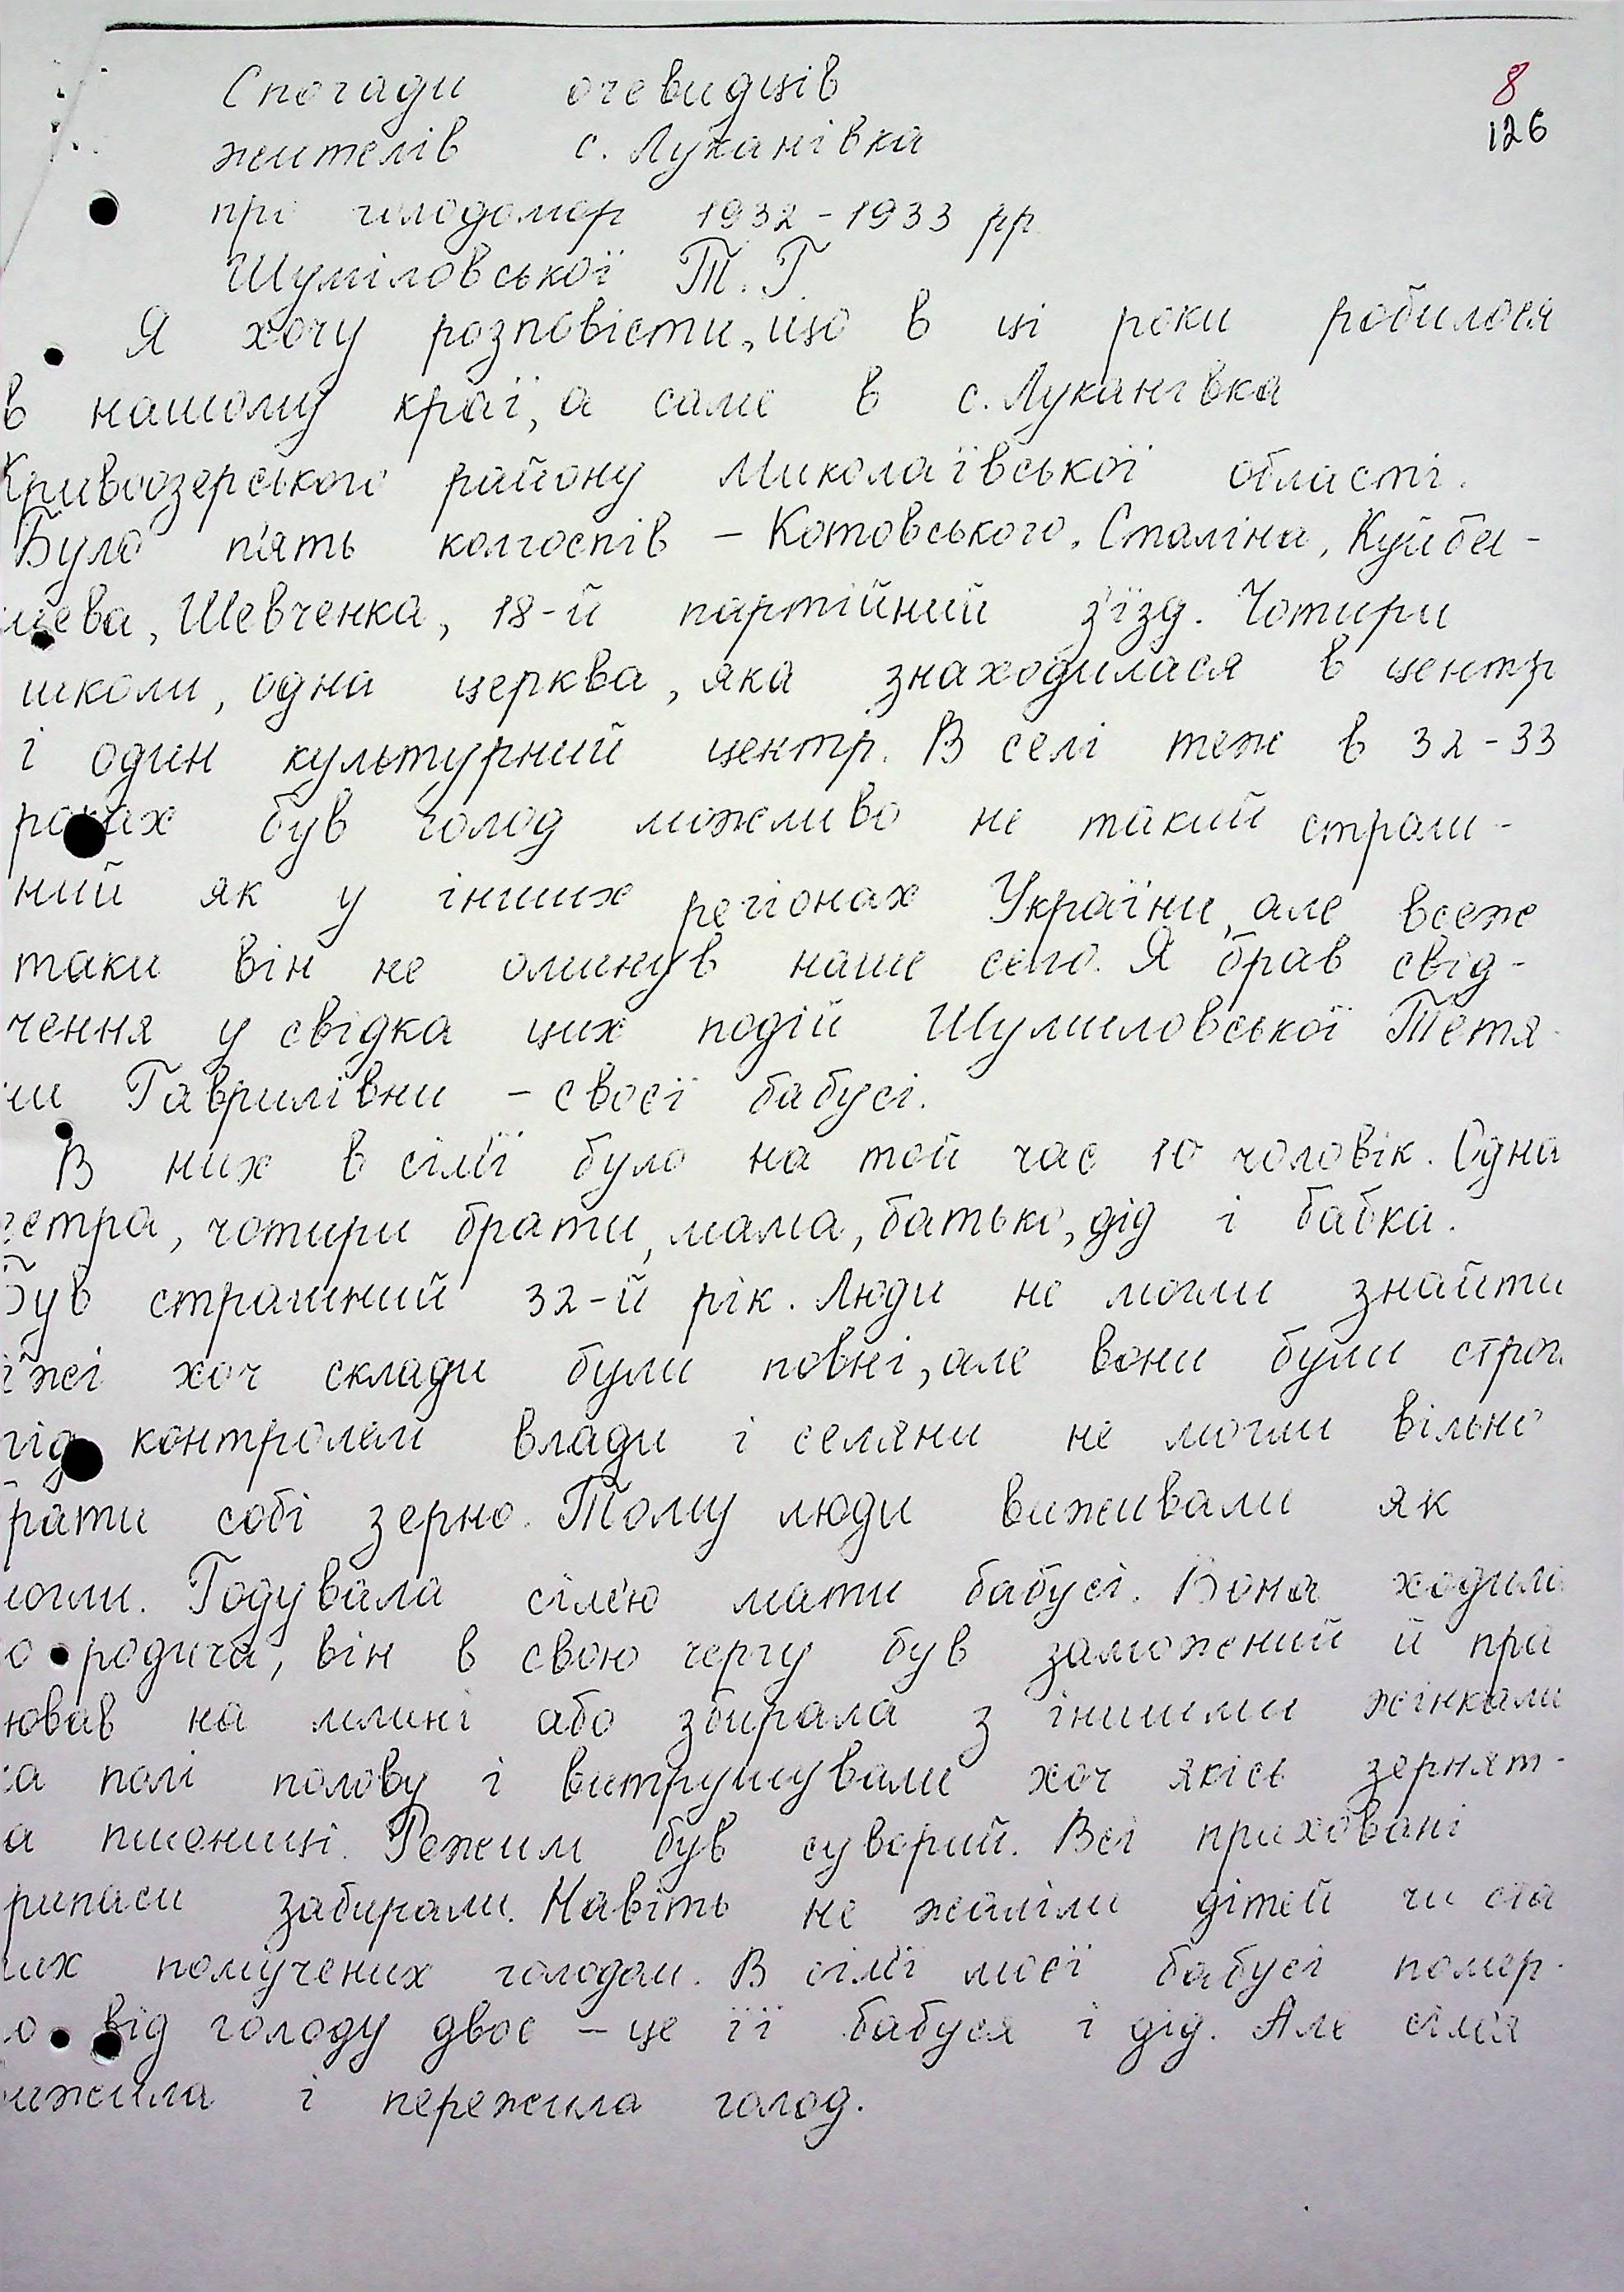 Спогади очевидців
8
126
жителів с. Луканівка
про голодомор 1932-1933 рр.
Шуміловської Т. Г.
Я хочу розповісти, що в ці роки робилося
в нашому краї, а саме в с. Луканівка
Кривоозерського району Миколаївської області.
Було п'ять колгоспів – Котовського, Сталіна, Куйби-
шева, Шевченка, 18-й партійний з'їзд. Чотири
школи, одна церква, яка знаходилася в центрі
і один культурний центр. В селі теж в 32-33
роках був голод можливо не такий страш-
ний як у інших регіонах України, але всеж
таки він не оминув наше село. Я брав свід-
чення у свідка цих подій Шумиловської Тетя-
ни Гаврилівни – своєї бабусі.
В них в сім'ї було на той час 10 чоловік. Одна
сестра, чотири брати, мама, батько, дід і бабка.
Був страшний 32-й рік. Люди не могли знайти
їжі хоч склади були повні, але вони були строг
під контролем влади і селяни не могли вільно
брати собі зерно. Тому люди виживали як
могли. Годувала сім'ю мати бабусі. Вона ходила
о родича, він в свою чергу був заможений й пра
цював на млині або збирала з іншими жінками
на полі полову і витрушували хоч якісь зернят-
а пшениці. Режим був суворий. Всі приховані
припаси забирали. Навіть не жаліли дітей чи ста
их помучених голодом. В сім'ї моєї бабусі помер-
ло від голоду двоє – це її бабуся і дід. Але сім'я
вижила і пережила голод.